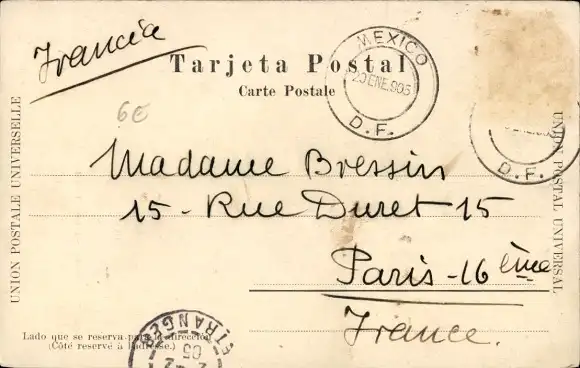 Francia
Tarjeta Postal
Carte Postale
MEXICO
29 ENE.905
D.F.
D.F.
6€
UNION POSTALE UNIVERSELLE
UNION POSTAL UNIVERSAL
Madame Bressin
15 - Rue Duret 15
Paris - 16ème
France.
Lado que se reserva para la dirección
(Côté reservé à l'adresse.)
ETRANGER
2
05